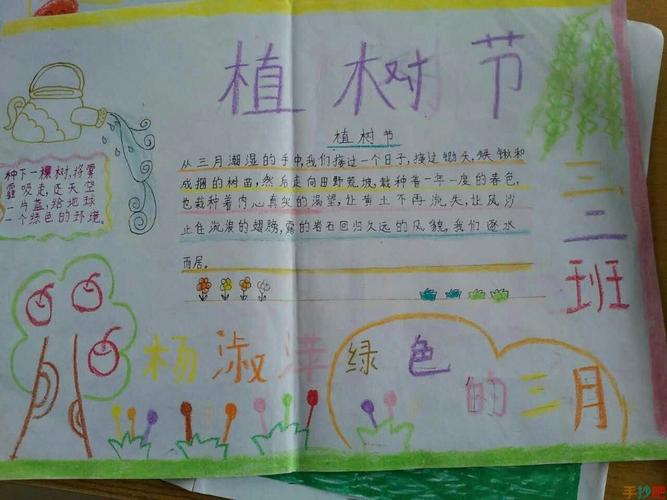 植树节
植树节
从三月潮湿的手中,我们接过一个日子,接过锄头,候锹和
成捆的树苗,然后走向田野荒坡,栽种着一年一度的春色,
也栽种着内心真实的渴望,让黄土不再流失,让风沙
止住流浪的翅膀,露的岩石回归久远的风貌,我们逐水
而居。
种下一棵树,将雾
霾吸走,还天空
一片蓝,给地球
一个绿色的环境。
三、二班
杨淑萍
绿色
的三月
手抄吧